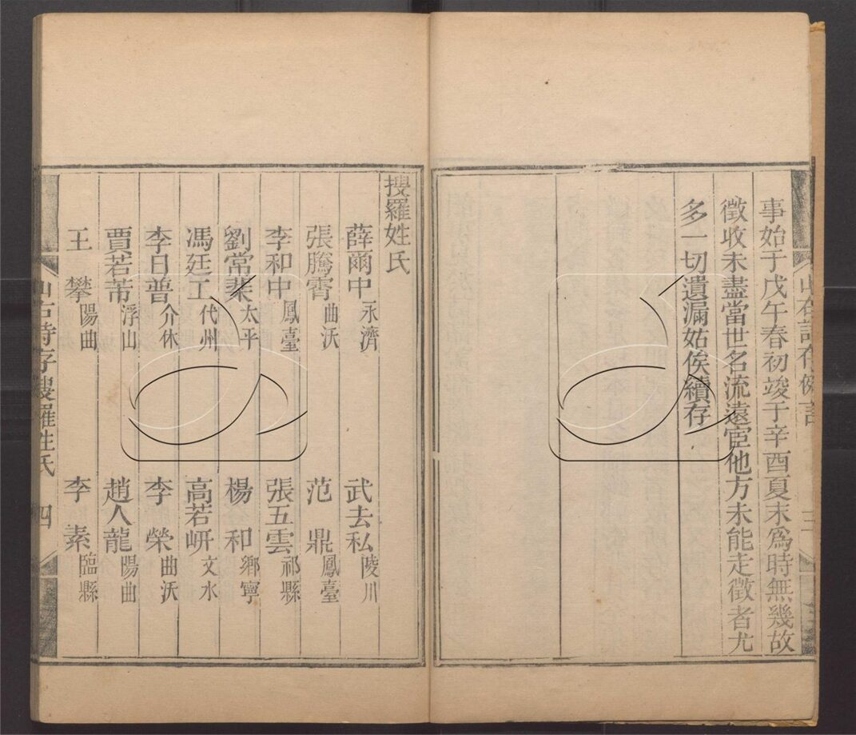 事始于戊午春初竣于辛酉夏末爲時無幾故
徵收未盡當世名流遠宦他方未能走徵者尤
多一切遺漏姑俟續存
搜羅姓氏
薛爾中永濟 武去私陵川
張騰霄曲沃 范鼎鳳臺
李和中鳳臺 張五雲祁縣
劉常棐太平 楊和鄉寧
馮廷工代州 高若岍文水
李日普介休 李榮曲沃
賈若芾浮山 趙人龍陽曲
王攀陽曲 李素臨縣
山右詩存搜羅姓氏 四